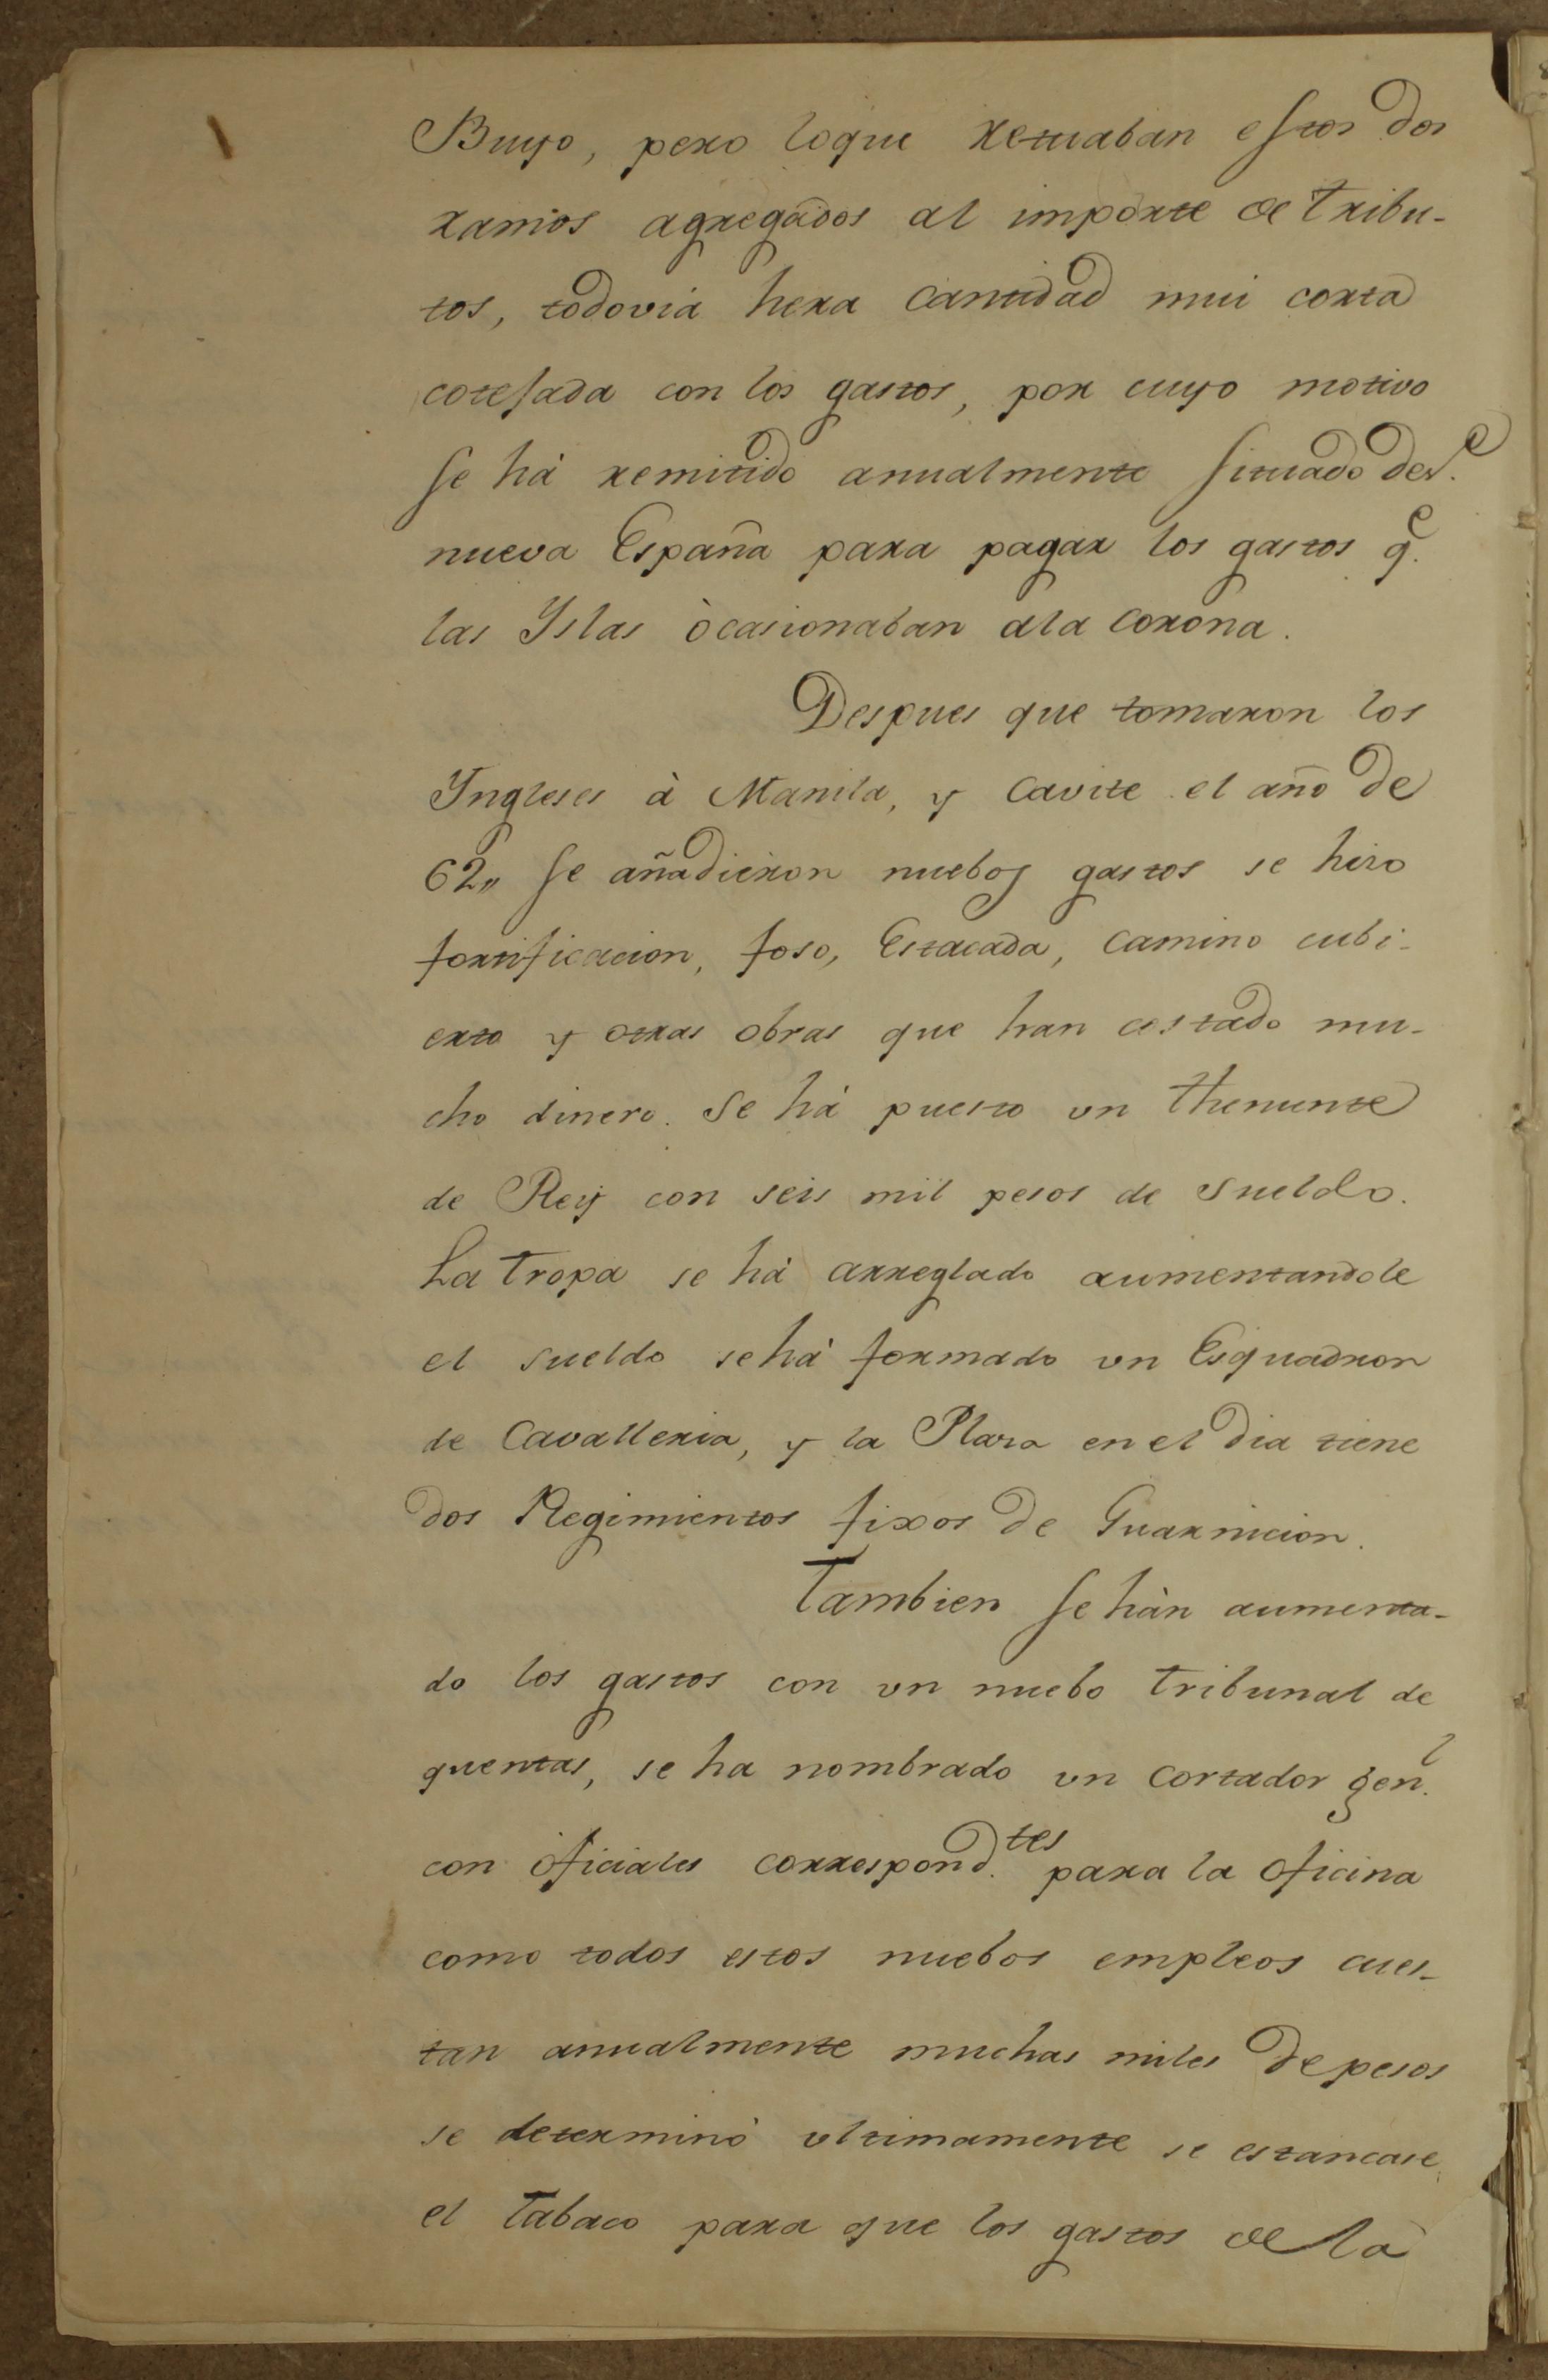 Buyo, pero loque retuaban estos dos
ramos agregados al importe de tribu-
tos, todovia hera cantidad mui corta
cotejada con los gastos, por cuyo motivo
se há remitido anualmente situado des.e
nueva España para pagar los gastos q.e
las Yslas òcasionaban ala corona.
Despues que tomaron los
Yngleses à Manila, y Cavite el año de
62,, se añadieron nuebos gastos se hizo
fortificacion, foso, Estacada, camino cubi-
erto y otras obras que han costado mu-
cho dinero. Se há puesto un thenente
de Rey con seis mil pesos de sueldo.
La tropa se há arreglado aumentandole
el sueldo sehá formado un Esquadron
de Cavalleria, y la Plaza en el dia tiene
dos Regimientos fixos de Guarnicion.
Tambien se hàn aumenta-
do los gastos con un nuebo tribunal de
quentas, se ha nombrado un cortador gen.l
con oficiales correspond.tes para la oficina
como todos estos nuebos empleos cues-
tan anualmente muchas miles de pesos
se determinó ultimamente se estancase
el tabaco para que los gastos de la